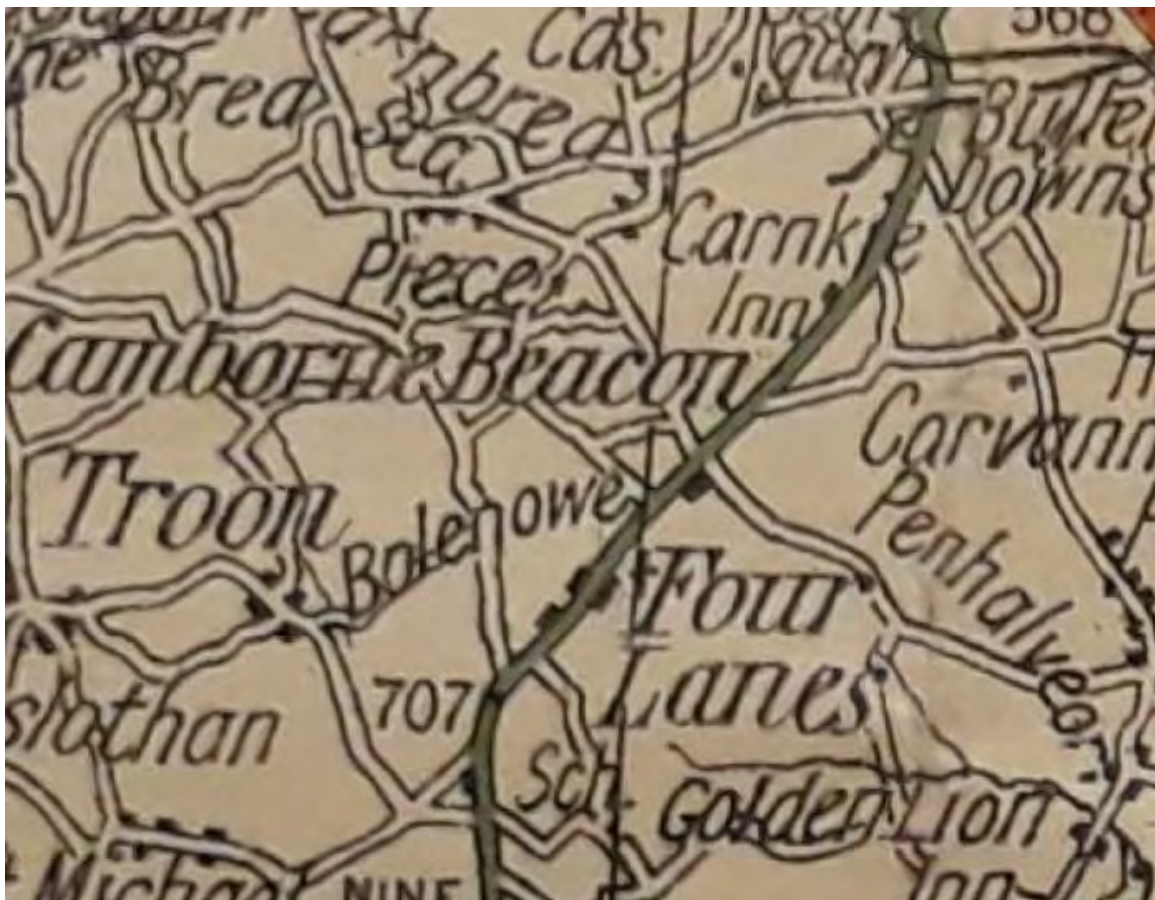 568
Cas.
Brea
nbrea
Sta.
Downs
Carnkie
Inn
Preece
Camborne Beacon
Carvann
Troon
Bolenowe
Penhalveor
Four
Lanes
707
slothan
Sch.
Golden Lion
Inn
Michael
NINE